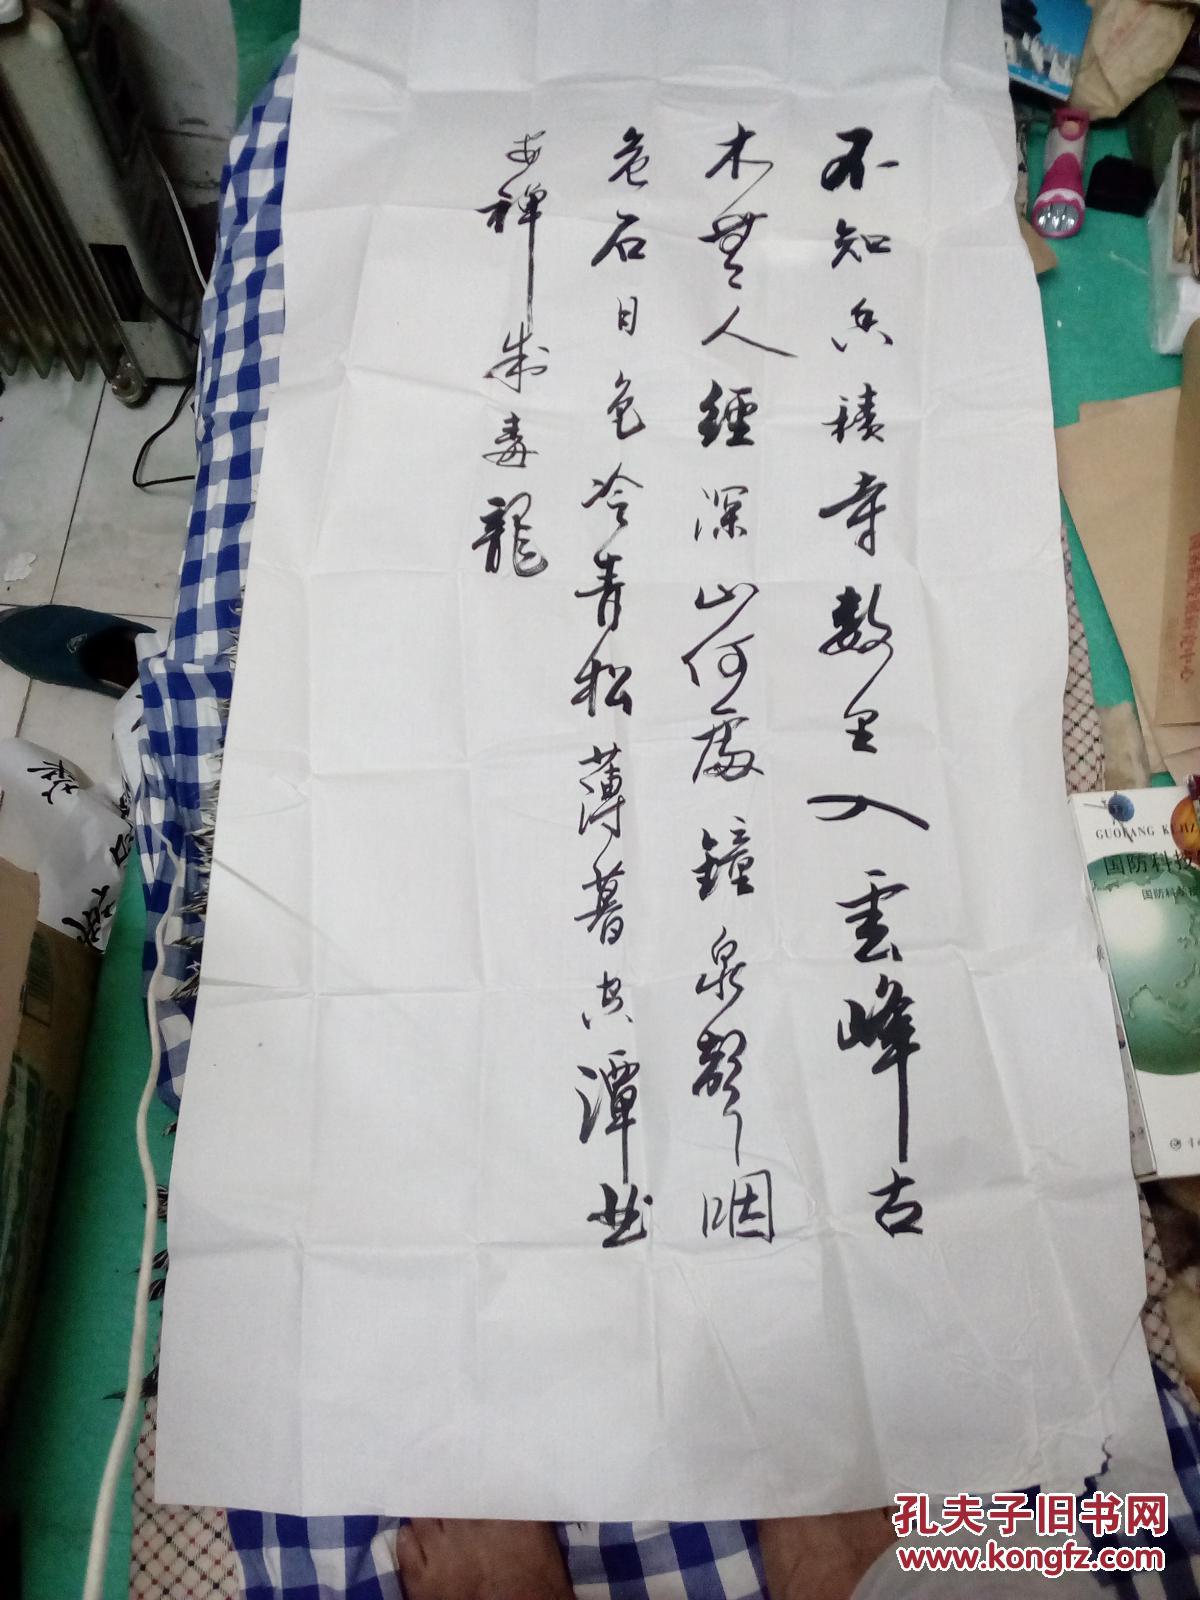 不知香積寺數里入雲峰古
木無人經深山何處鐘泉聲咽
危石日色冷青松薄暮空潭曲
安禪制毒龍
GUOFANG KEJI
国防科技
国防科
孔夫子旧书网
www.kongfz.com